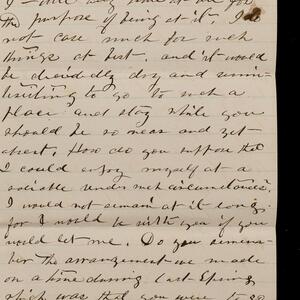 the purpose of being at it. I do
not care much for such
things at best, and it would
be decidedly dry and unin-
teresting to go to such a
place and stay while you
should be so near and yet
apart. How do you suppose that
I could enjoy myself at a
sociable under such circumstances.
I would not remain at it long.
for I would be with you if you
would let me. Do you remem-
ber the arrangement we made
on a time during last Spring
which was that you were to go